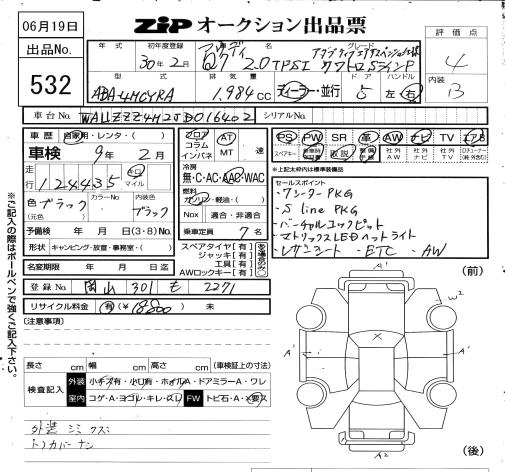 06月19日
ZIP オークション出品票
出品No.
532
年式 初年度登録 車名 グレード
30年2月 アウディ Q7 2.0 TFSI クワトロ S ライン P
評価点
4
型式 排気量 ドア ハンドル
ABA-4MCYRA 1,984cc ディーラー・並行 5 左・右
内装
B
車台No. WAUZZZ4M2JD016402 シリアルNo.
車歴 自家用・レンタ・( )
車検 9年2月
走行 124435 キロ マイル
色 ブラック (元色) カラーNo. 内装色 ブラック
予備検 年 月 日(3・8)No.
形状 キャンピング・放置・事務室・( )
名変期限 年 月 日迄
登録No. 岡山 301 2271
リサイクル料金 有(¥18800) 未
フロア コラム インパネ AT MT 速
冷房
無・C・AC・AAC・WAC
燃料
ガソリン・軽油・( )
Nox 適合・非適合
乗車定員 7名
スペアタイヤ[有]
ジャッキ[有]
工具[有]
AWロックキー[有]
を適合のみ
PS PW SR 革 AW ナビ TV エアB
スペアキー 取説 社外AW 社外ナビ 社外TV
※上記太枠内は標準装備品
セールスポイント
・7シーターPKG
・S line PKG
・バーチャルコックピット
・マトリックスLEDヘッドライト
・レザーシート・ETC・AW
[注意事項]
長さ cm 幅 cm 高さ cm (車検証上の寸法)
検査記入 外装 小キズ有・小凹有・ホイルA・ドアミラーA・ワレ
室内 コゲ・A・ヨゴレ・キレ・スレ FW トビ石・A・×要ス
外装 シミ クスミ
トノカバーナシ
※ご記入の際はボールペンで強くご記入下さい。
(前)
A1
W2
A1
X
A1
A2
(後)